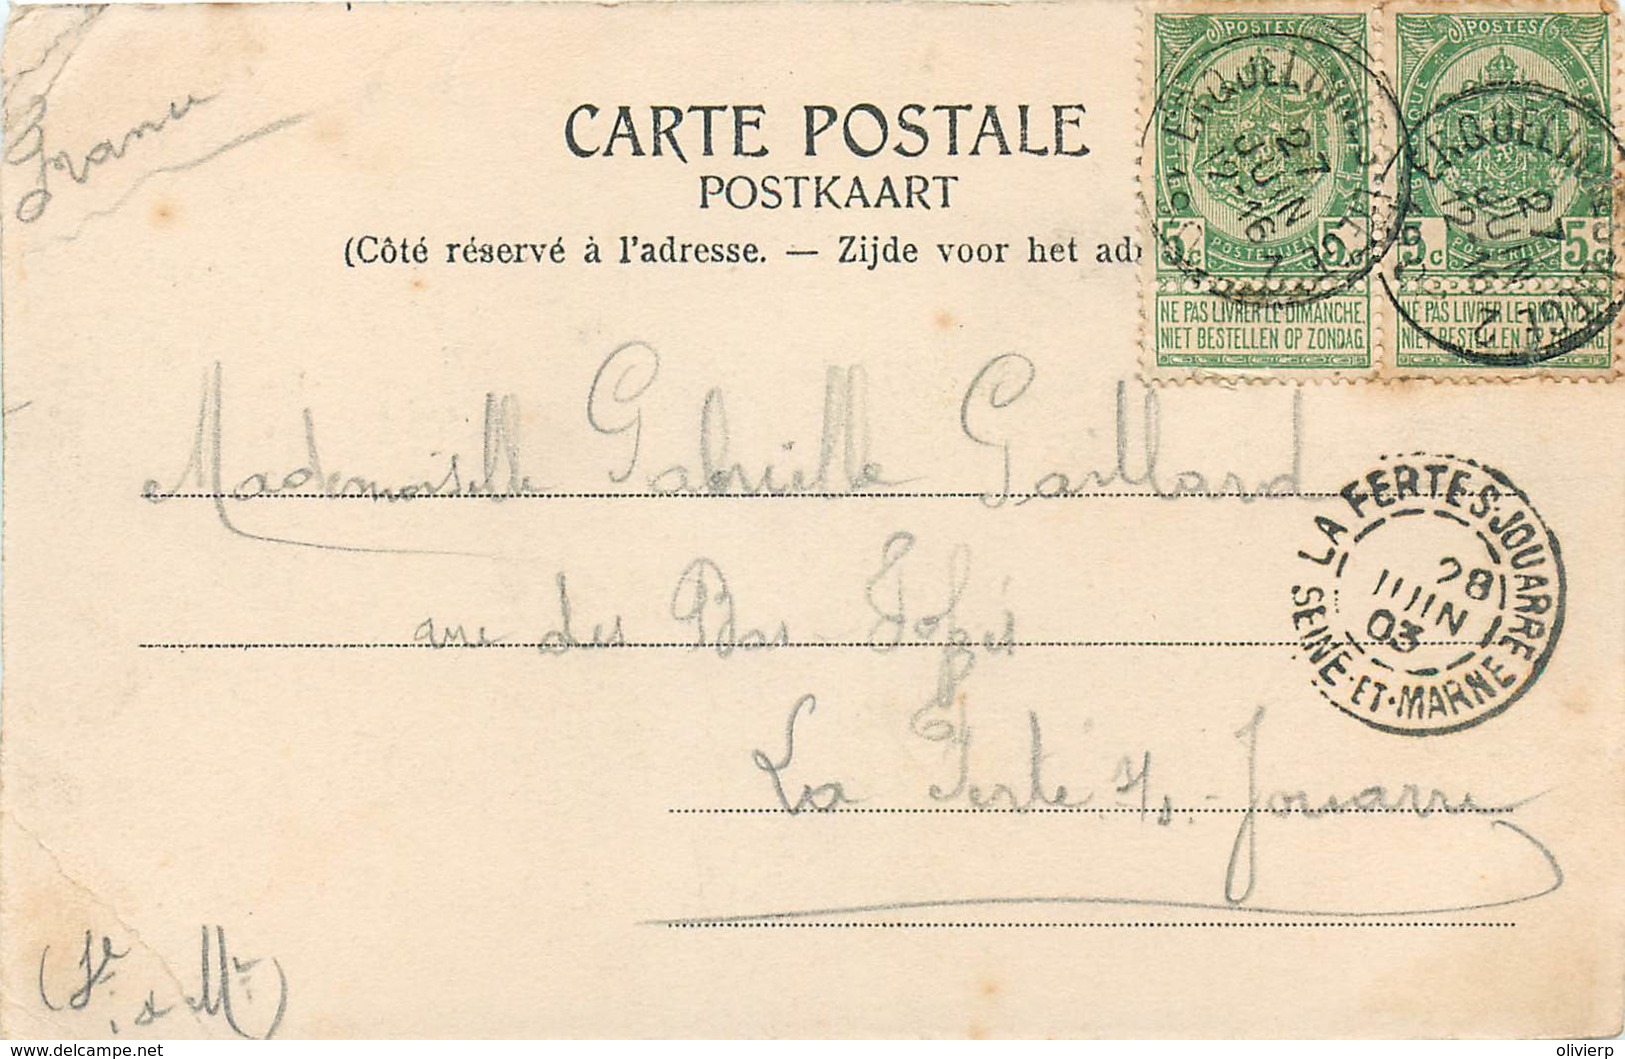 France
CARTE POSTALE
POSTKAART
(Côté réservé à l'adresse. — Zijde voor het ad
POSTES
5c 5c
POSTERIJEN
NE PAS LIVRER LE DIMANCHE.
NIET BESTELLEN OP ZONDAG.
POSTES
5c 5c
POSTERIJEN
NE PAS LIVRER LE DIMANCHE.
NIET BESTELLEN OP ZONDAG.
ERQUELINNES
27
JUIN
ERQUELINNES
27
JUIN
Mademoiselle Gabrielle Gaillard
rue des Bas-
La Ferté s/s-Jouarre
LA FERTE-S-JOUARRE
28
JUIN
03
SEINE-ET-MARNE
(Se & Mr)
delcampe.net
olivierp